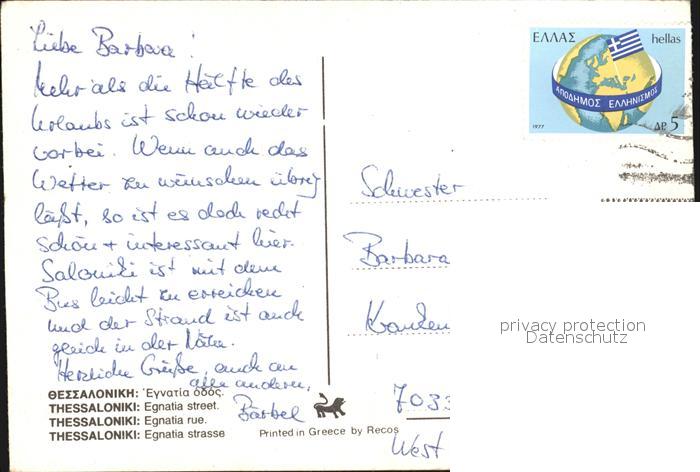 Liebe Barbara!
Mehr als die Hälfte des
Urlaubs ist schon wieder
vorbei. Wenn auch das
Wetter zu wünschen übrig
läßt, so ist es doch recht
schön + interessant hier.
Saloniki ist mit dem
Bus leicht zu erreichen
und der Strand ist auch
gleich in der Nähe.
Herzliche Grüße, auch an
alle anderen,
Bärbel
ΘΕΣΣΑΛΟΝΙΚΗ: Ἐγνατία ὁδός.
THESSALONIKI: Egnatia street.
THESSALONIKI: Egnatia rue.
THESSALONIKI: Egnatia strasse
Printed in Greece by Recos
ΕΛΛΑΣ hellas
ΑΠΟΔΗΜΟΣ ΕΛΛΗΝΙΣΜΟΣ
1977 ΔΡ 5
Schwester
Barbara
Kranken
7033
West
privacy protection
Datenschutz